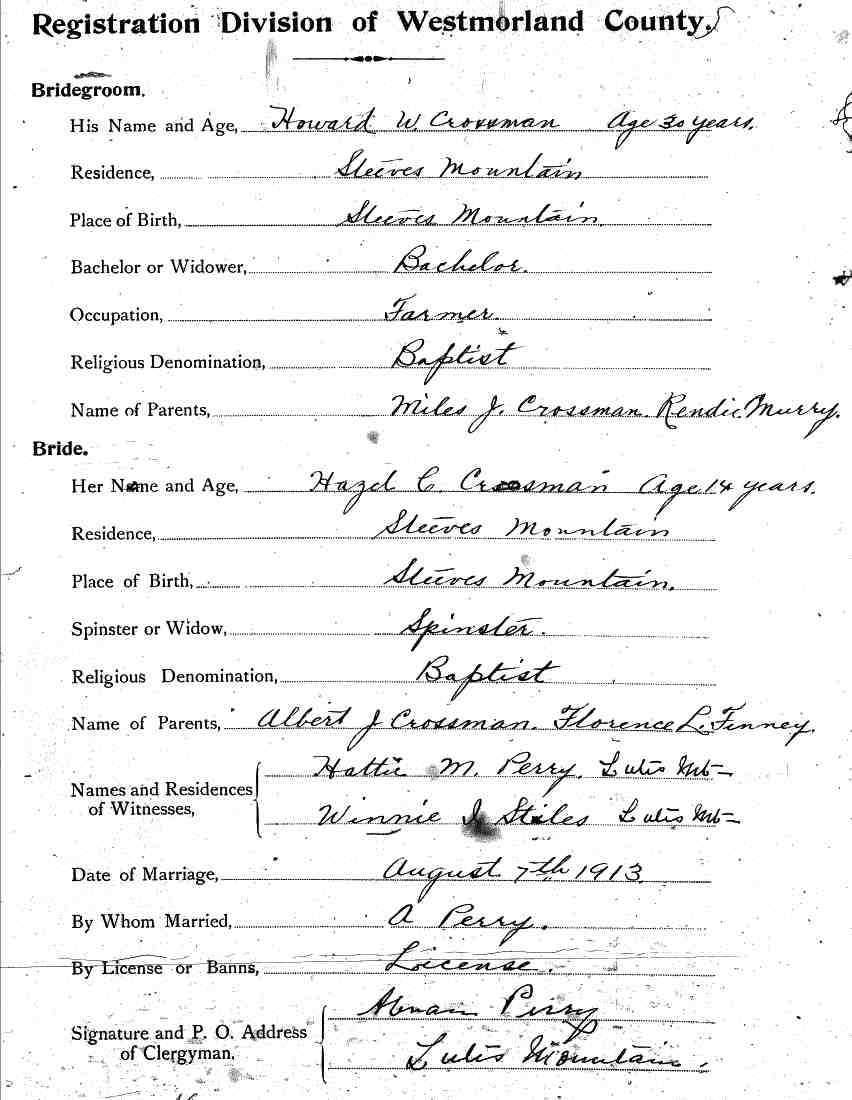 Registration Division of Westmorland County.
Bridegroom.
His Name and Age, Howard W. Crossman Age 30 years.
Residence, Steeves Mountain
Place of Birth, Steeves Mountain.
Bachelor or Widower, Bachelor.
Occupation, Farmer.
Religious Denomination, Baptist
Name of Parents, Miles J. Crossman. Rendie Murry.
Bride.
Her Name and Age, Hazel C. Crossman Age 14 years.
Residence, Steeves Mountain
Place of Birth, Steeves Mountain.
Spinster or Widow, Spinster.
Religious Denomination, Baptist
Name of Parents, Albert J Crossman. Florence L. Finney.
Names and Residences of Witnesses,
Hattie M. Perry. Lutis Mt
Winnie Stiles Lutis Mt
Date of Marriage, August 7th 1913.
By Whom Married, A Perry.
By License or Banns, License.
Signature and P. O. Address of Clergyman.
Perry
Lutis Mountain.